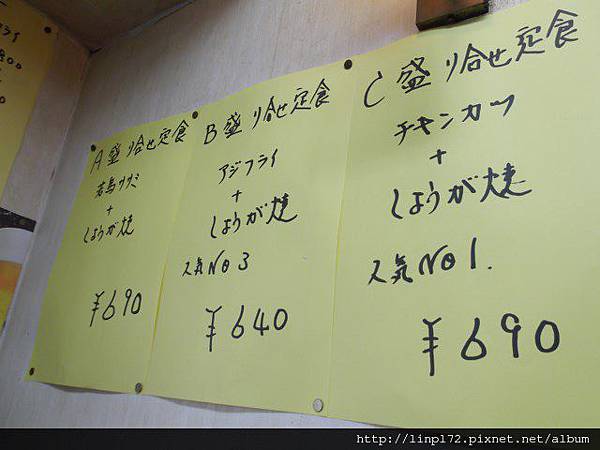 A盛り合せ定食
若鳥ササミ
+
しょうが焼
¥690
B盛り合せ定食
アジフライ
+
しょうが焼
人気No3
¥640
C盛り合せ定食
チキンカツ
+
しょうが焼
人気No1.
¥690
http://linp172.pixnet.net/album